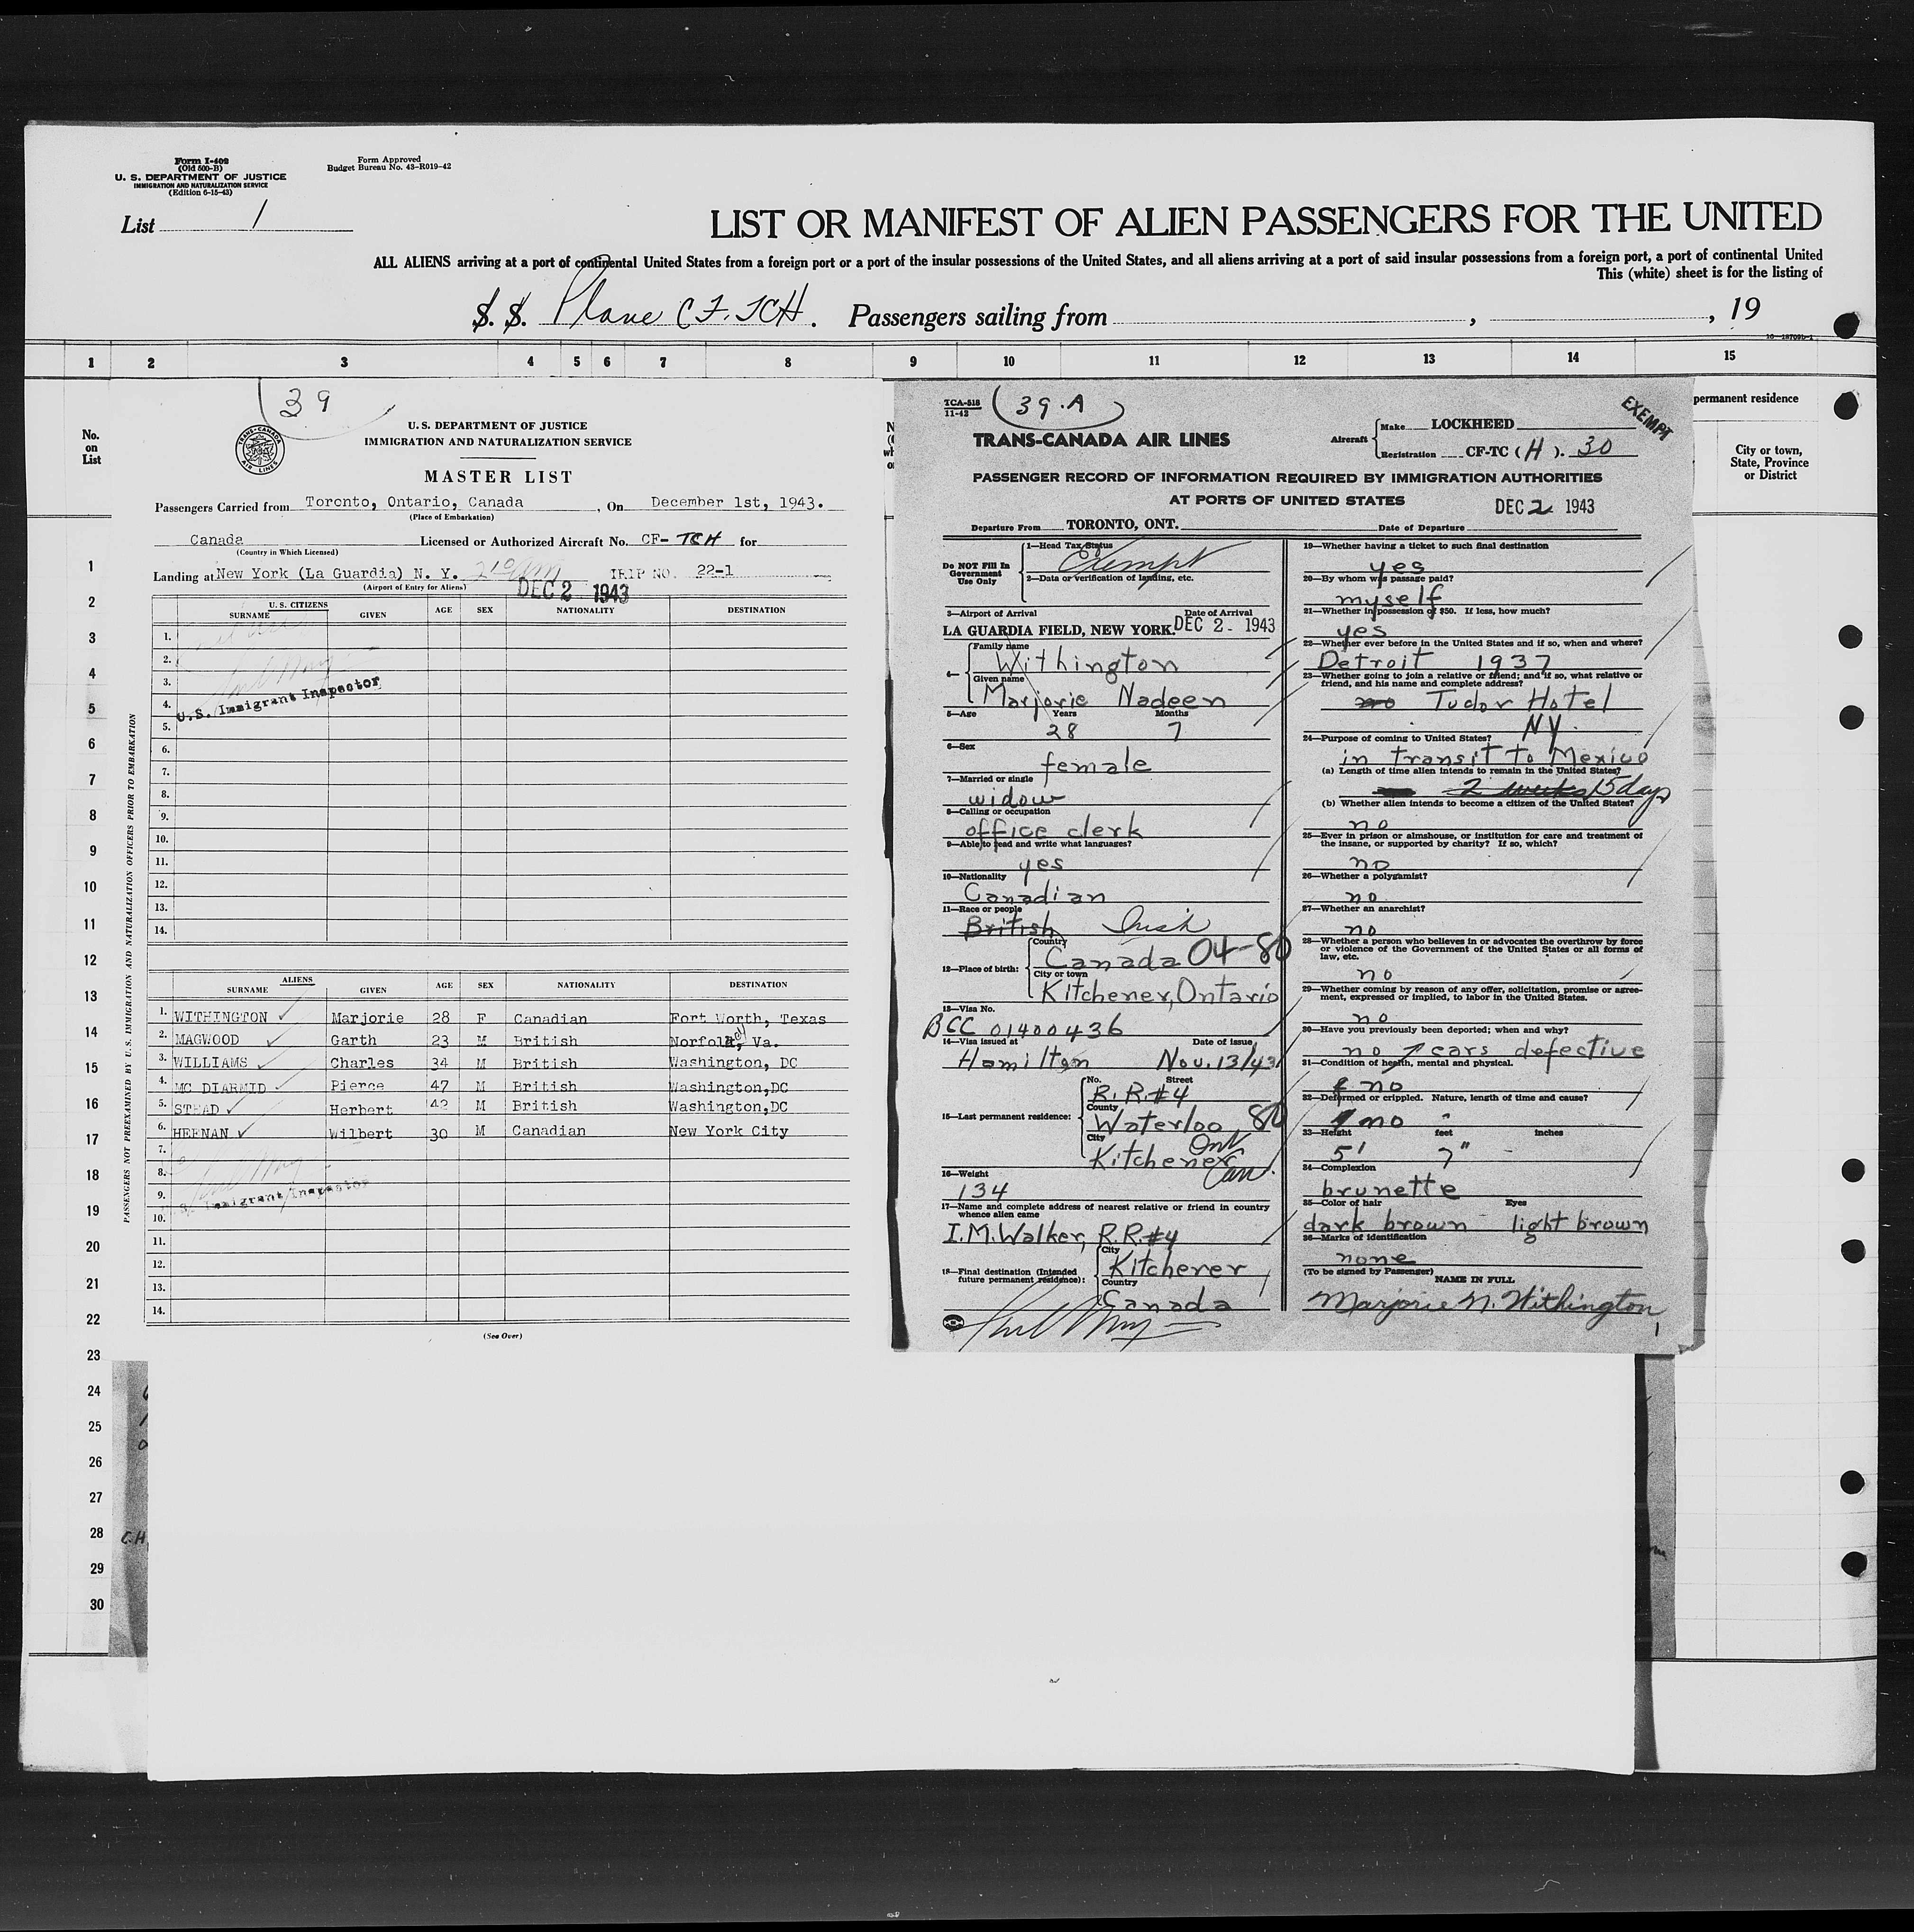 Form I-402
(Old 500-B)
U. S. DEPARTMENT OF JUSTICE
IMMIGRATION AND NATURALIZATION SERVICE
(Edition 6-15-43)
Form Approved
Budget Bureau No. 43-R019-42
List 1
LIST OR MANIFEST OF ALIEN PASSENGERS FOR THE UNITED
ALL ALIENS arriving at a port of continental United States from a foreign port or a port of the insular possessions of the United States, and all aliens arriving at a port of said insular possessions from a foreign port, a port of continental United
This (white) sheet is for the listing of
S. S. Plane CF. TCH. Passengers sailing from , , 19
1 2 3 4 5 6 7 8 9 10 11 12 13 14 15
No.
on
List
1
2
3
4
5
6
7
8
9
10
11
12
13
14
15
16
17
18
19
20
21
22
23
24
25
26
27
28
29
30
C.H.
PASSENGERS NOT PREEXAMINED BY U. S. IMMIGRATION AND NATURALIZATION OFFICERS PRIOR TO EMBARKATION
39
TRANS-CANADA AIR LINES
U. S. DEPARTMENT OF JUSTICE
IMMIGRATION AND NATURALIZATION SERVICE
MASTER LIST
Passengers Carried from Toronto, Ontario, Canada , On December 1st, 1943.
(Place of Embarkation)
Canada Licensed or Authorized Aircraft No. CF- TCH for
(Country in Which Licensed)
Landing at New York (La Guardia) N. Y. TRIP NO. 22-1
(Airport of Entry for Aliens)
DEC 2 1943
U. S. CITIZENS
SURNAME GIVEN AGE SEX NATIONALITY DESTINATION
1.
2.
3.
4.
U.S. Immigrant Inspector
5.
6.
7.
8.
9.
10.
11.
12.
13.
14.
ALIENS
SURNAME GIVEN AGE SEX NATIONALITY DESTINATION
1. WITHINGTON Marjorie 28 F Canadian Fort Worth, Texas
2. MAGWOOD Garth 23 M British Norfolk, Va.
3. WILLIAMS Charles 34 M British Washington, DC
4. MC DIARMID Pierce 47 M British Washington,DC
5. STEAD Herbert 42 M British Washington,DC
6. HEENAN Wilbert 30 M Canadian New York City
7.
8.
9.
Immigrant Inspector
10.
11.
12.
13.
14.
(See Over)
TCA-518
11-42
39.A
EXEMPT
TRANS-CANADA AIR LINES
Aircraft
Make LOCKHEED
Registration CF-TC ( H ). 30
PASSENGER RECORD OF INFORMATION REQUIRED BY IMMIGRATION AUTHORITIES
AT PORTS OF UNITED STATES
DEC 2 1943
Departure From TORONTO, ONT. Date of Departure
Do NOT Fill In
Government
Use Only
1—Head Tax Status
Exempt
2—Data or verification of landing, etc.
3—Airport of Arrival Date of Arrival
LA GUARDIA FIELD, NEW YORK. DEC 2 - 1943
4—
Family name
Withington
Given name
Marjorie Nadeen
5—Age Years Months
28 7
6—Sex
female
7—Married or single
widow
8—Calling or occupation
office clerk
9—Able to read and write what languages?
yes
10—Nationality
Canadian
11—Race or people
British Irish
12—Place of birth:
Country
Canada 04-80
City or town
Kitchener, Ontario
13—Visa No.
BCC 01400436
14—Visa issued at Date of issue
Hamilton Nov. 13/43
15—Last permanent residence:
No. Street
R. R. #4
County
Waterloo 80
City
Kitchener Ont
Can.
16—Weight
134
17—Name and complete address of nearest relative or friend in country
whence alien came
I.M. Walker, R.R.#4
18—Final destination (Intended
future permanent residence):
City
Kitchener
Country
Canada
19—Whether having a ticket to such final destination
yes
20—By whom was passage paid?
myself
21—Whether in possession of $50. If less, how much?
yes
22—Whether ever before in the United States and if so, when and where?
Detroit 1937
23—Whether going to join a relative or friend; and if so, what relative or
friend, and his name and complete address?
no Tudor Hotel
NY.
24—Purpose of coming to United States?
in transit to Mexico
(a) Length of time alien intends to remain in the United States?
2 weeks 15 days
(b) Whether alien intends to become a citizen of the United States?
no
25—Ever in prison or almshouse, or institution for care and treatment of
the insane, or supported by charity? If so, which?
no
26—Whether a polygamist?
no
27—Whether an anarchist?
no
28—Whether a person who believes in or advocates the overthrow by force
or violence of the Government of the United States or all forms of
law, etc.
no
29—Whether coming by reason of any offer, solicitation, promise or agree-
ment, expressed or implied, to labor in the United States.
no
30—Have you previously been deported; when and why?
no ears defective
31—Condition of health, mental and physical.
no
32—Deformed or crippled. Nature, length of time and cause?
no
33—Height feet inches
5' 7"
34—Complexion
brunette
35—Color of hair Eyes
dark brown light brown
36—Marks of identification
none
(To be signed by Passenger)
NAME IN FULL
Marjorie N. Withington
1
permanent residence
City or town,
State, Province
or District